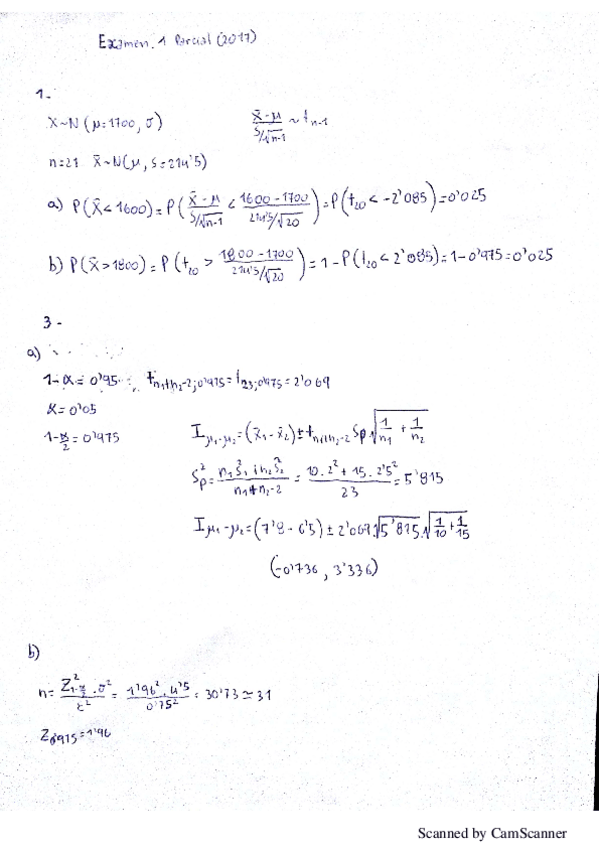 Examen. 1 Parcial (2017)
1.-
X~N(μ=1700, σ)
x̄-μ / S/√n-1 ~ t n-1
n=21 x̄~N(μ, s=214'5)
a) P(x̄<1600)=P( x̄-μ / S/√n-1 < 1600-1700 / 214'5/√20 )=P(t20 < -2'085)=0'025
b) P(x̄>1800)=P( t20 > 1800-1700 / 214'5/√20 )=1-P(t20<2'085)=1-0'975=0'025
3-
a)
1-α=0'95 t n1+n2-2;0'975=t23;0'975=2'069
α=0'05
1-α/2=0'975
I μ1-μ2=(x̄1-x̄2)±t n1+n2-2 Sp√ 1/n1 + 1/n2
Sp²= n1S1²+n2S2² / n1+n2-2 = 10·2²+15·2'5² / 23 =5'815
I μ1-μ2=(7'8-6'5)±2'069·√5'815·√ 1/10 + 1/15
(-0'736, 3'336)
b)
n= Z²1-α/2·σ² / ε² = 1'96²·4'5 / 0'75² = 30'73≃31
Z0'975=1'96
Scanned by CamScanner